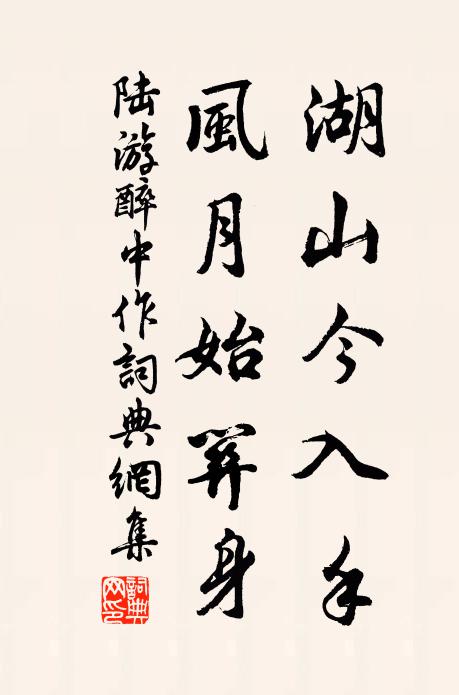 湖山今入手
風月始關身
陆游醉中作詞典網集
詞典
网印